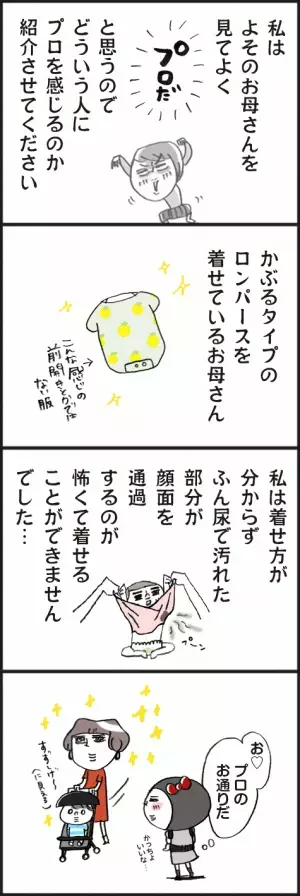 私は
よそのお母さんを
見てよく
プロだ
と思うので
どういう人に
プロを感じるのか
紹介させてください
かぶるタイプの
ロンパースを
着せているお母さん
こんな感じの
前開きとかでは
ない服
私は着せ方が
分からず
ふん尿で汚れた
部分が
顔面を
通過
するのが
怖くて着せる
ことができません
でした…
プーン
お♡
プロの
お通りだ
すずしげ〜
(に見える)
かっちょ
いいな…